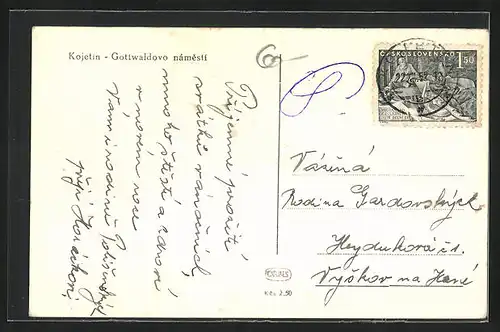 Kojetín - Gottwaldovo náměstí
Příjemné prožití
svátků vánočních
mnoho štěstí a zdraví
v novém roce
Vám i rodině
přejí Horákovi
ČESKOSLOVENSKO
1.50
Vážená
Rodina Gardavských
Heydukova č 1.
Vyškov na Hané
ORBIS
Kčs 2.50